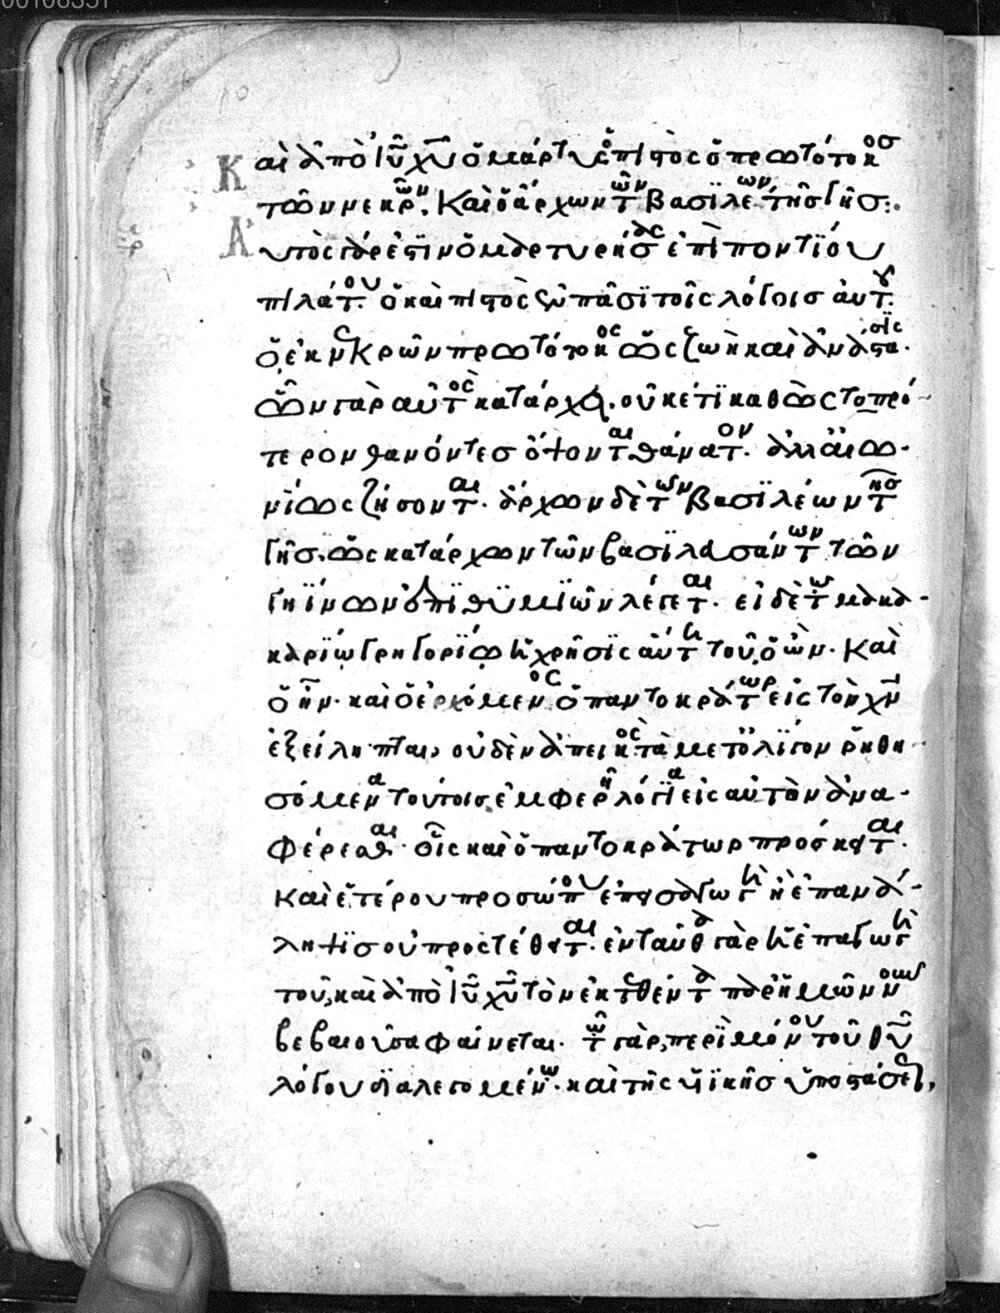 00106351
Καὶ ἀπὸ ἰῦ χῦ ὁ μάρτυς ὁ πιστὸς ὁ πρωτότοκος
τῶν νεκρῶν. Καὶ ὁ ἄρχων τῶν βασιλέων τῆς γῆς:
Αὐτὸς γάρ ἐστιν ὁ μαρτυρήσας ἐπὶ ποντίου
πιλάτου. ὁ καὶ πιστὸς ἐν πᾶσι τοῖς λόγοις αὐτοῦ.
ὁ ἐκ νεκρῶν πρωτότοκος ὡς ζωὴ καὶ ἀνάστασις.
ὧν γὰρ αὐτὸς κατάρχει. οὐκέτι καθὼς το πρό-
τερον θανόντες ὄψονται θάνατον. ἀλλ' αἰω-
νίως ζήσονται. ἄρχων δὲ τῶν βασιλέων τῆς
γῆς. ὡς κατάρχων τῶν βασιλευσάντων τῶν
γηίνων ἐπιθυμιῶν λέγεται. εἰ δὲ τῶ μακα-
καρίω γρηγορίω ἡ χρῆσις αὕτη τοῦ, ὁ ὢν. Καὶ
ὁ ἦν. καὶ ὁ ἐρχόμενος ὁ παντοκράτωρ εἰς τὸν χν
ἐξείληπται, οὐδὲν ἀπεικὸς τὰ μετ' ὀλίγον ῥηθη-
σόμενα τούτοις ἐμφερῆ λόγια εἰς αὐτὸν ἀνα-
φέρεσθαι. οἷς καὶ ὁ παντοκράτωρ πρόσκειται.
Καὶ ἑτέρου προσώπου ἐπεισαγωγὴ ἢ ἐπανά-
ληψις οὐ προστέθειται. ἐνταῦθα γὰρ ἡ ἐπαγωγὴ
τοῦ, καὶ ἀπὸ ἰῦ χῦ τὸν ἐκτεθέντα παρ' ἡμῶν νοῦν
βεβαιοῦσα φαίνεται. τῶ γὰρ, περὶ μόνου τοῦ θῦ
λόγου διαλεγομένω. καὶ τῆς υἱϊκῆς ὑποστάσεως,